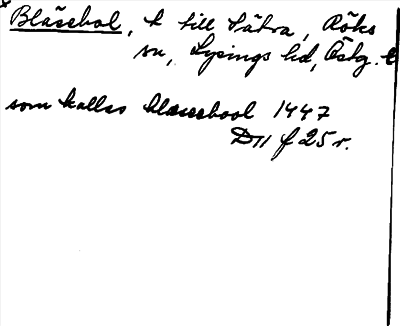 Blåsebol, t till Sätra, Röks
sn, Lysings hd, Östg.
som kallas blasebool 1447
D11 f 25 r.